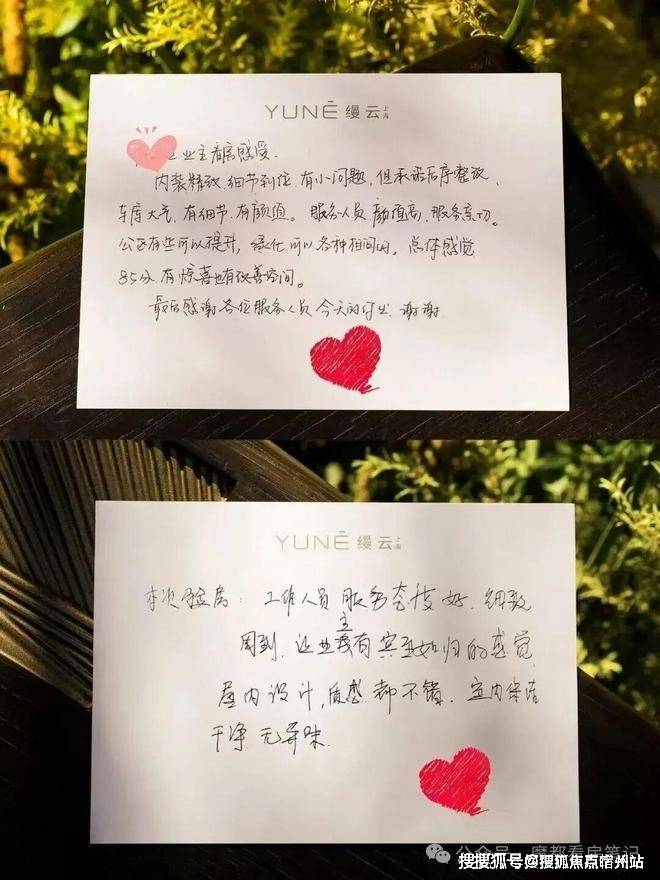 YUNÉ 缦云 上海
业主看房感受.
内装精致.细节到位.有小问题,但承诺后序整改、
车库大气,有细节.有颜值。服务人员颜值高,服务亲切。
公区有些可以提升,绿化可以各种相间的,总体感觉
85分.有惊喜也有改善空间。
最后感谢各位服务人员今天的付出 谢谢
YUNÉ 缦云 上海
本次验房:工作人员服务态度好.细致
周到.让业主我有宾至如归的感觉
屋内设计,质感都不错.室内保洁
干净.无异味.
公众号·魔都看房笔记
搜搜狐号@搜狐焦点宿州站